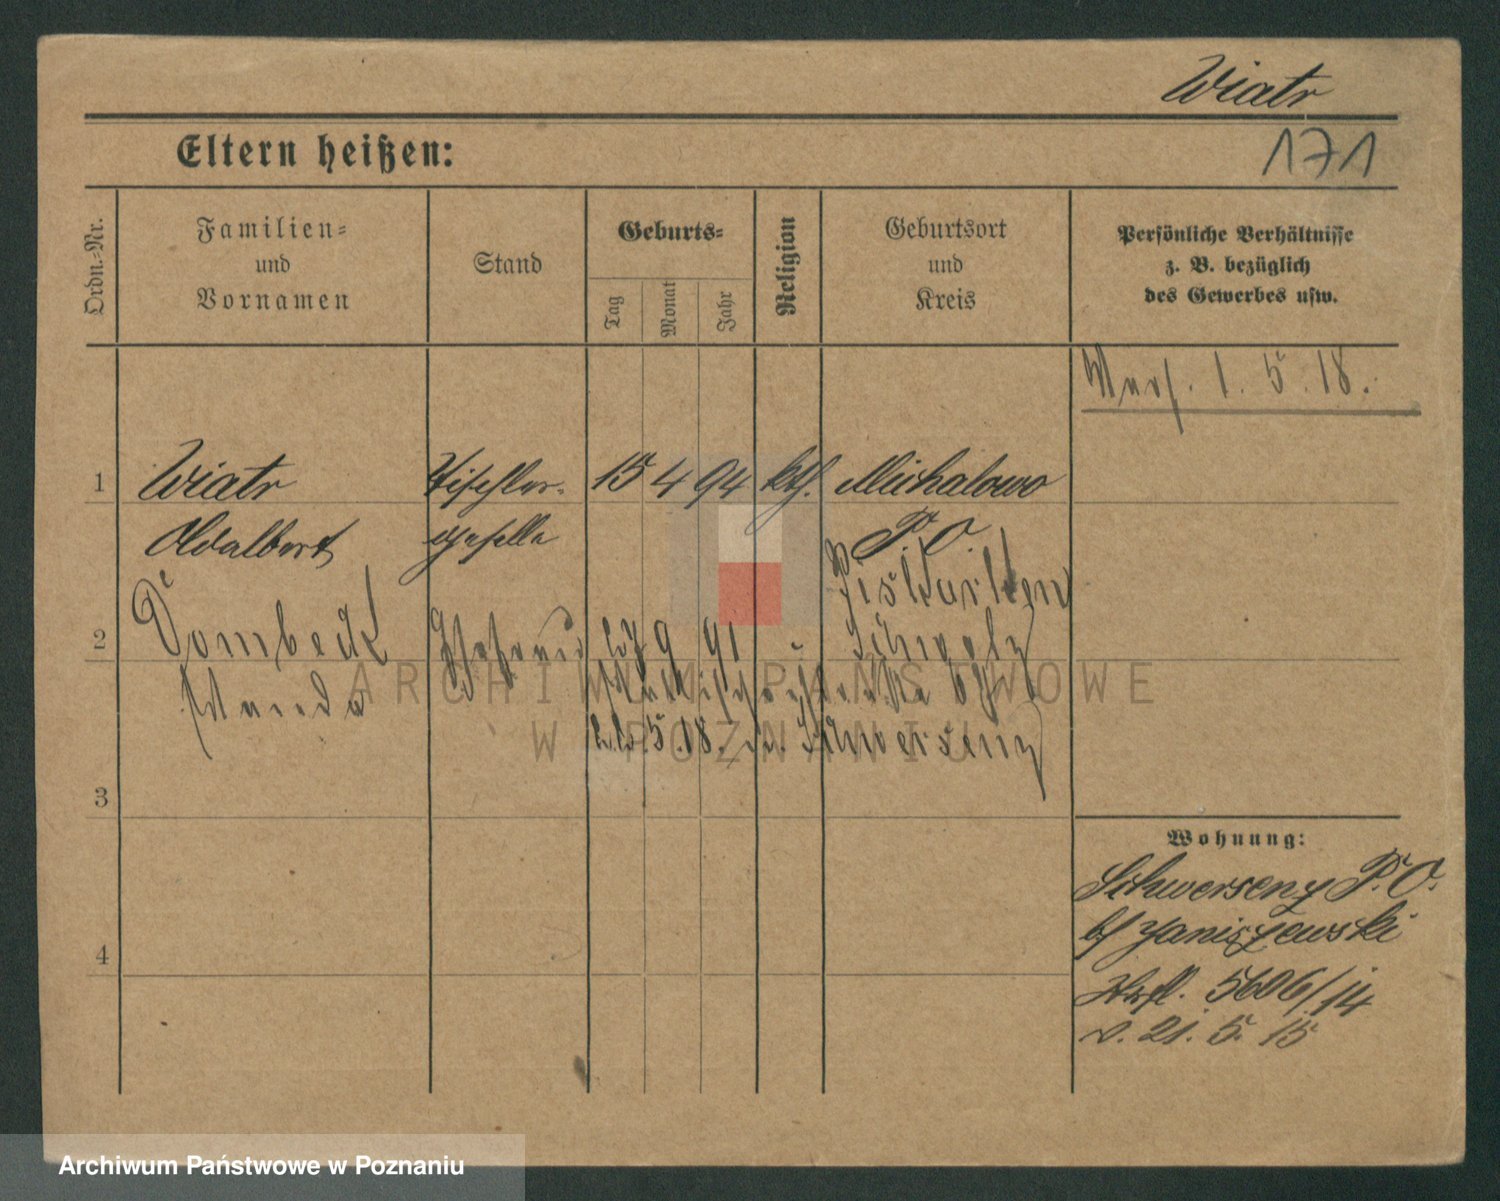 Wiatr
Eltern heißen:
171
Ordn.-Nr.
Familien-
und
Vornamen
Stand
Geburts-
Tag
Monat
Jahr
Religion
Geburtsort
und
Kreis
Persönliche Verhältnisse
z. B. bezüglich
des Gewerbes usw.
1. 5. 18.
1 Wiatr Tischler- 15 4 94 kth. Michalowo
Adalbert geselle P. O.
2 Dombeck 9 91
5. 18. Schwersenz
3
4
Wohnung:
Schwersenz P. O.
b/ Janiszewski
5606/14
v. 21. 5. 15
ARCHIWUM PAŃSTWOWE
W POZNANIU
Archiwum Państwowe w Poznaniu